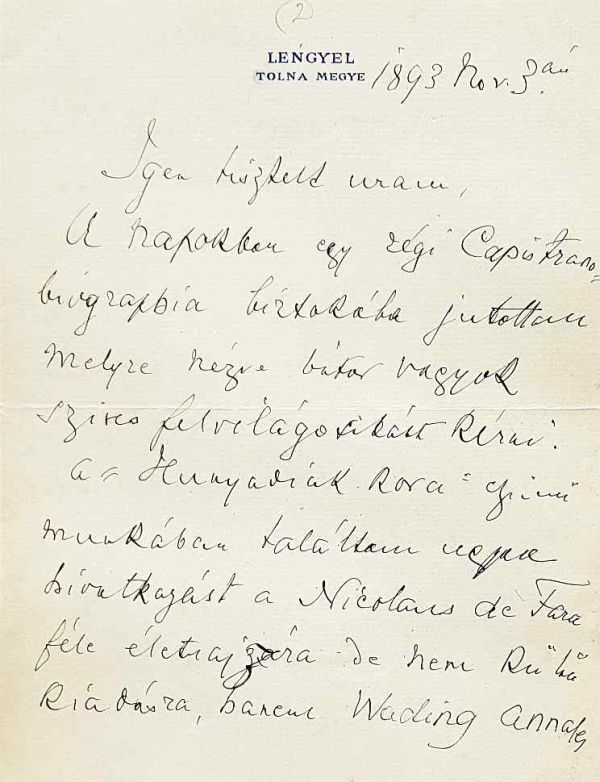 (2)
LENGYEL
TOLNA MEGYE 1893 Nov. 3.án
Igen tisztelt uram,
A napokban egy régi Capistrano=
biographia birtokába jutottam
melyre nézve bátor vagyok
szives felvilágositást kérni.
a „Hunyadiak kora" czimü
munkában találtam ugyan
hivatkozást a Nicolaus de Fara
féle életrajzára de nem külön
kiadásra, hanem Wading Annales